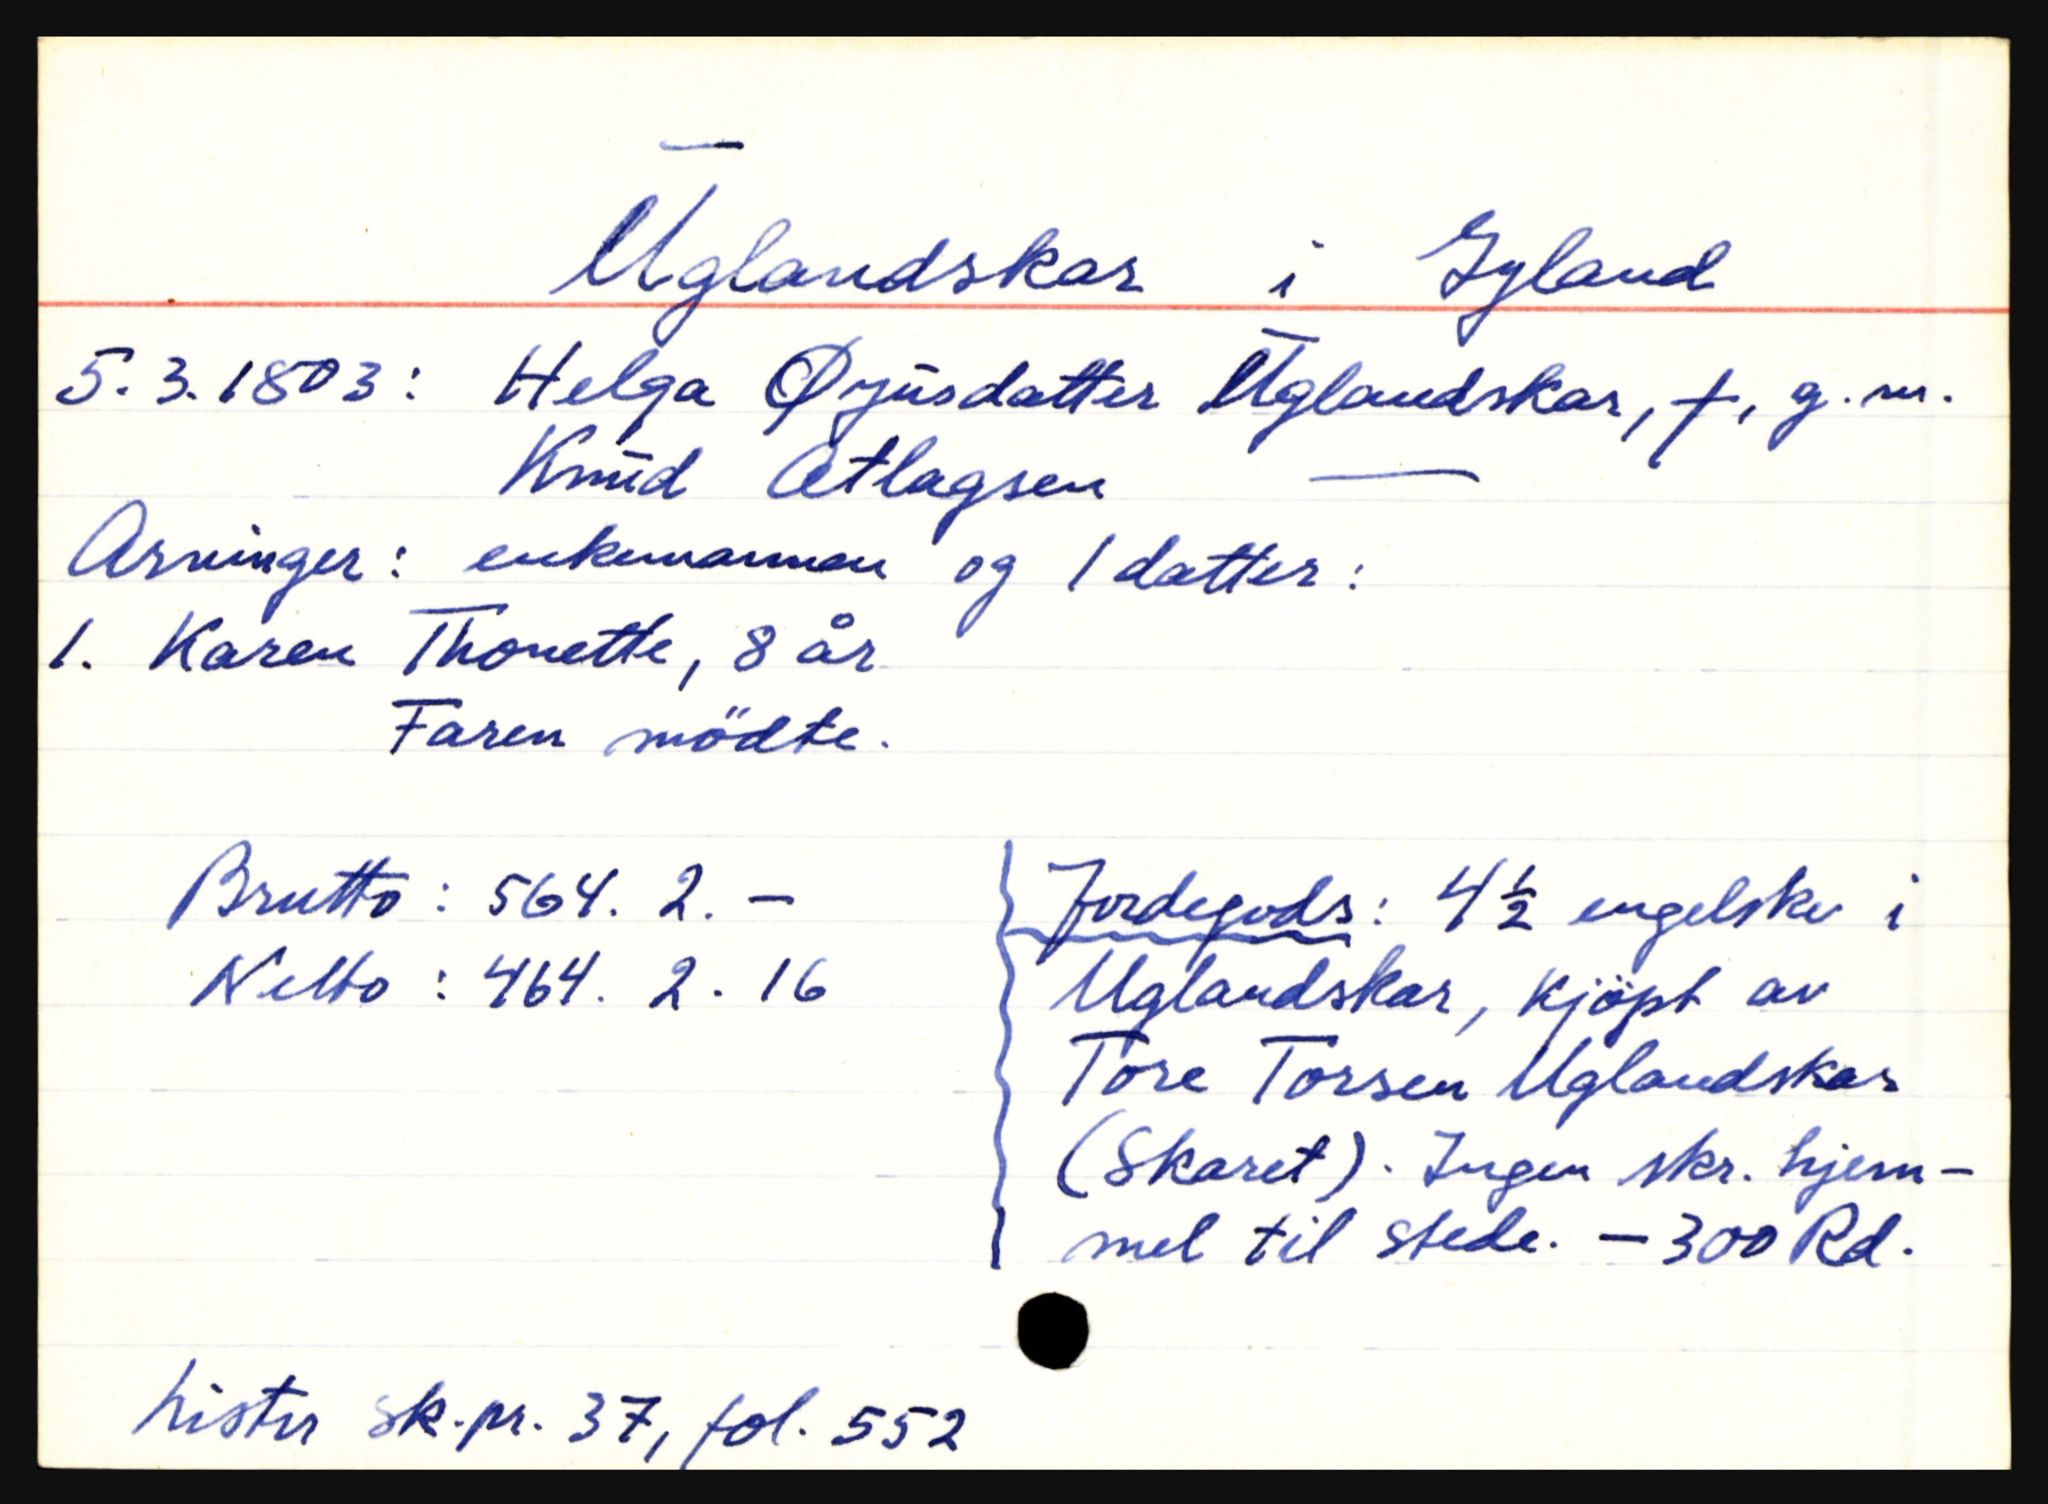 Uglandskar i Gyland
5.3.1803: Helga Øyusdatter Uglandskar, †, g.m.
Knud Atlagsen —
Arvinger: enkemannen og 1 datter:
1. Karen Thonette, 8 år
Faren mödte.
Brutto: 564. 2. –
Netto: 464. 2. 16
Jordegods: 4 ½ engelske i
Uglandskar, kjöpt av
Tore Torsen Uglandskar
(Skaret). Ingen skr. hjem-
mel til stede. – 300 Rd.
Lister sk.pr. 37, fol. 552